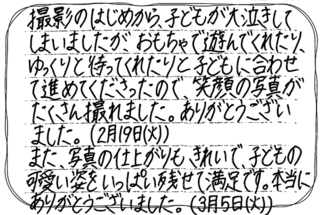 撮影のはじめから、子どもが大泣きして
しまいましたが、おもちゃで遊んでくれたり、
ゆっくりと待ってくれたりと子どもに合わせ
て進めてくださったので、笑顔の写真が
たくさん撮れました。ありがとうござい
ました。(2月19日(火))
また、写真の仕上がりも、きれいで、子どもの
可愛い姿をいっぱい残せて満足です。本当に
ありがとうございました。(3月5日(火))